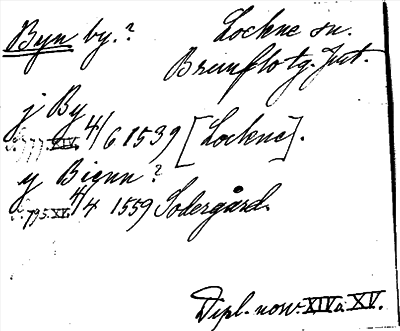 Byn by.? Lockne sn.
Brunflo tg. Jmt.
j By
s. 777. XIV. 4/6 1539 [Lockne].
y Bienn?
s. 795. XV. 4/4 1559 Södergård.
Dipl. norv. XIV o. XV.